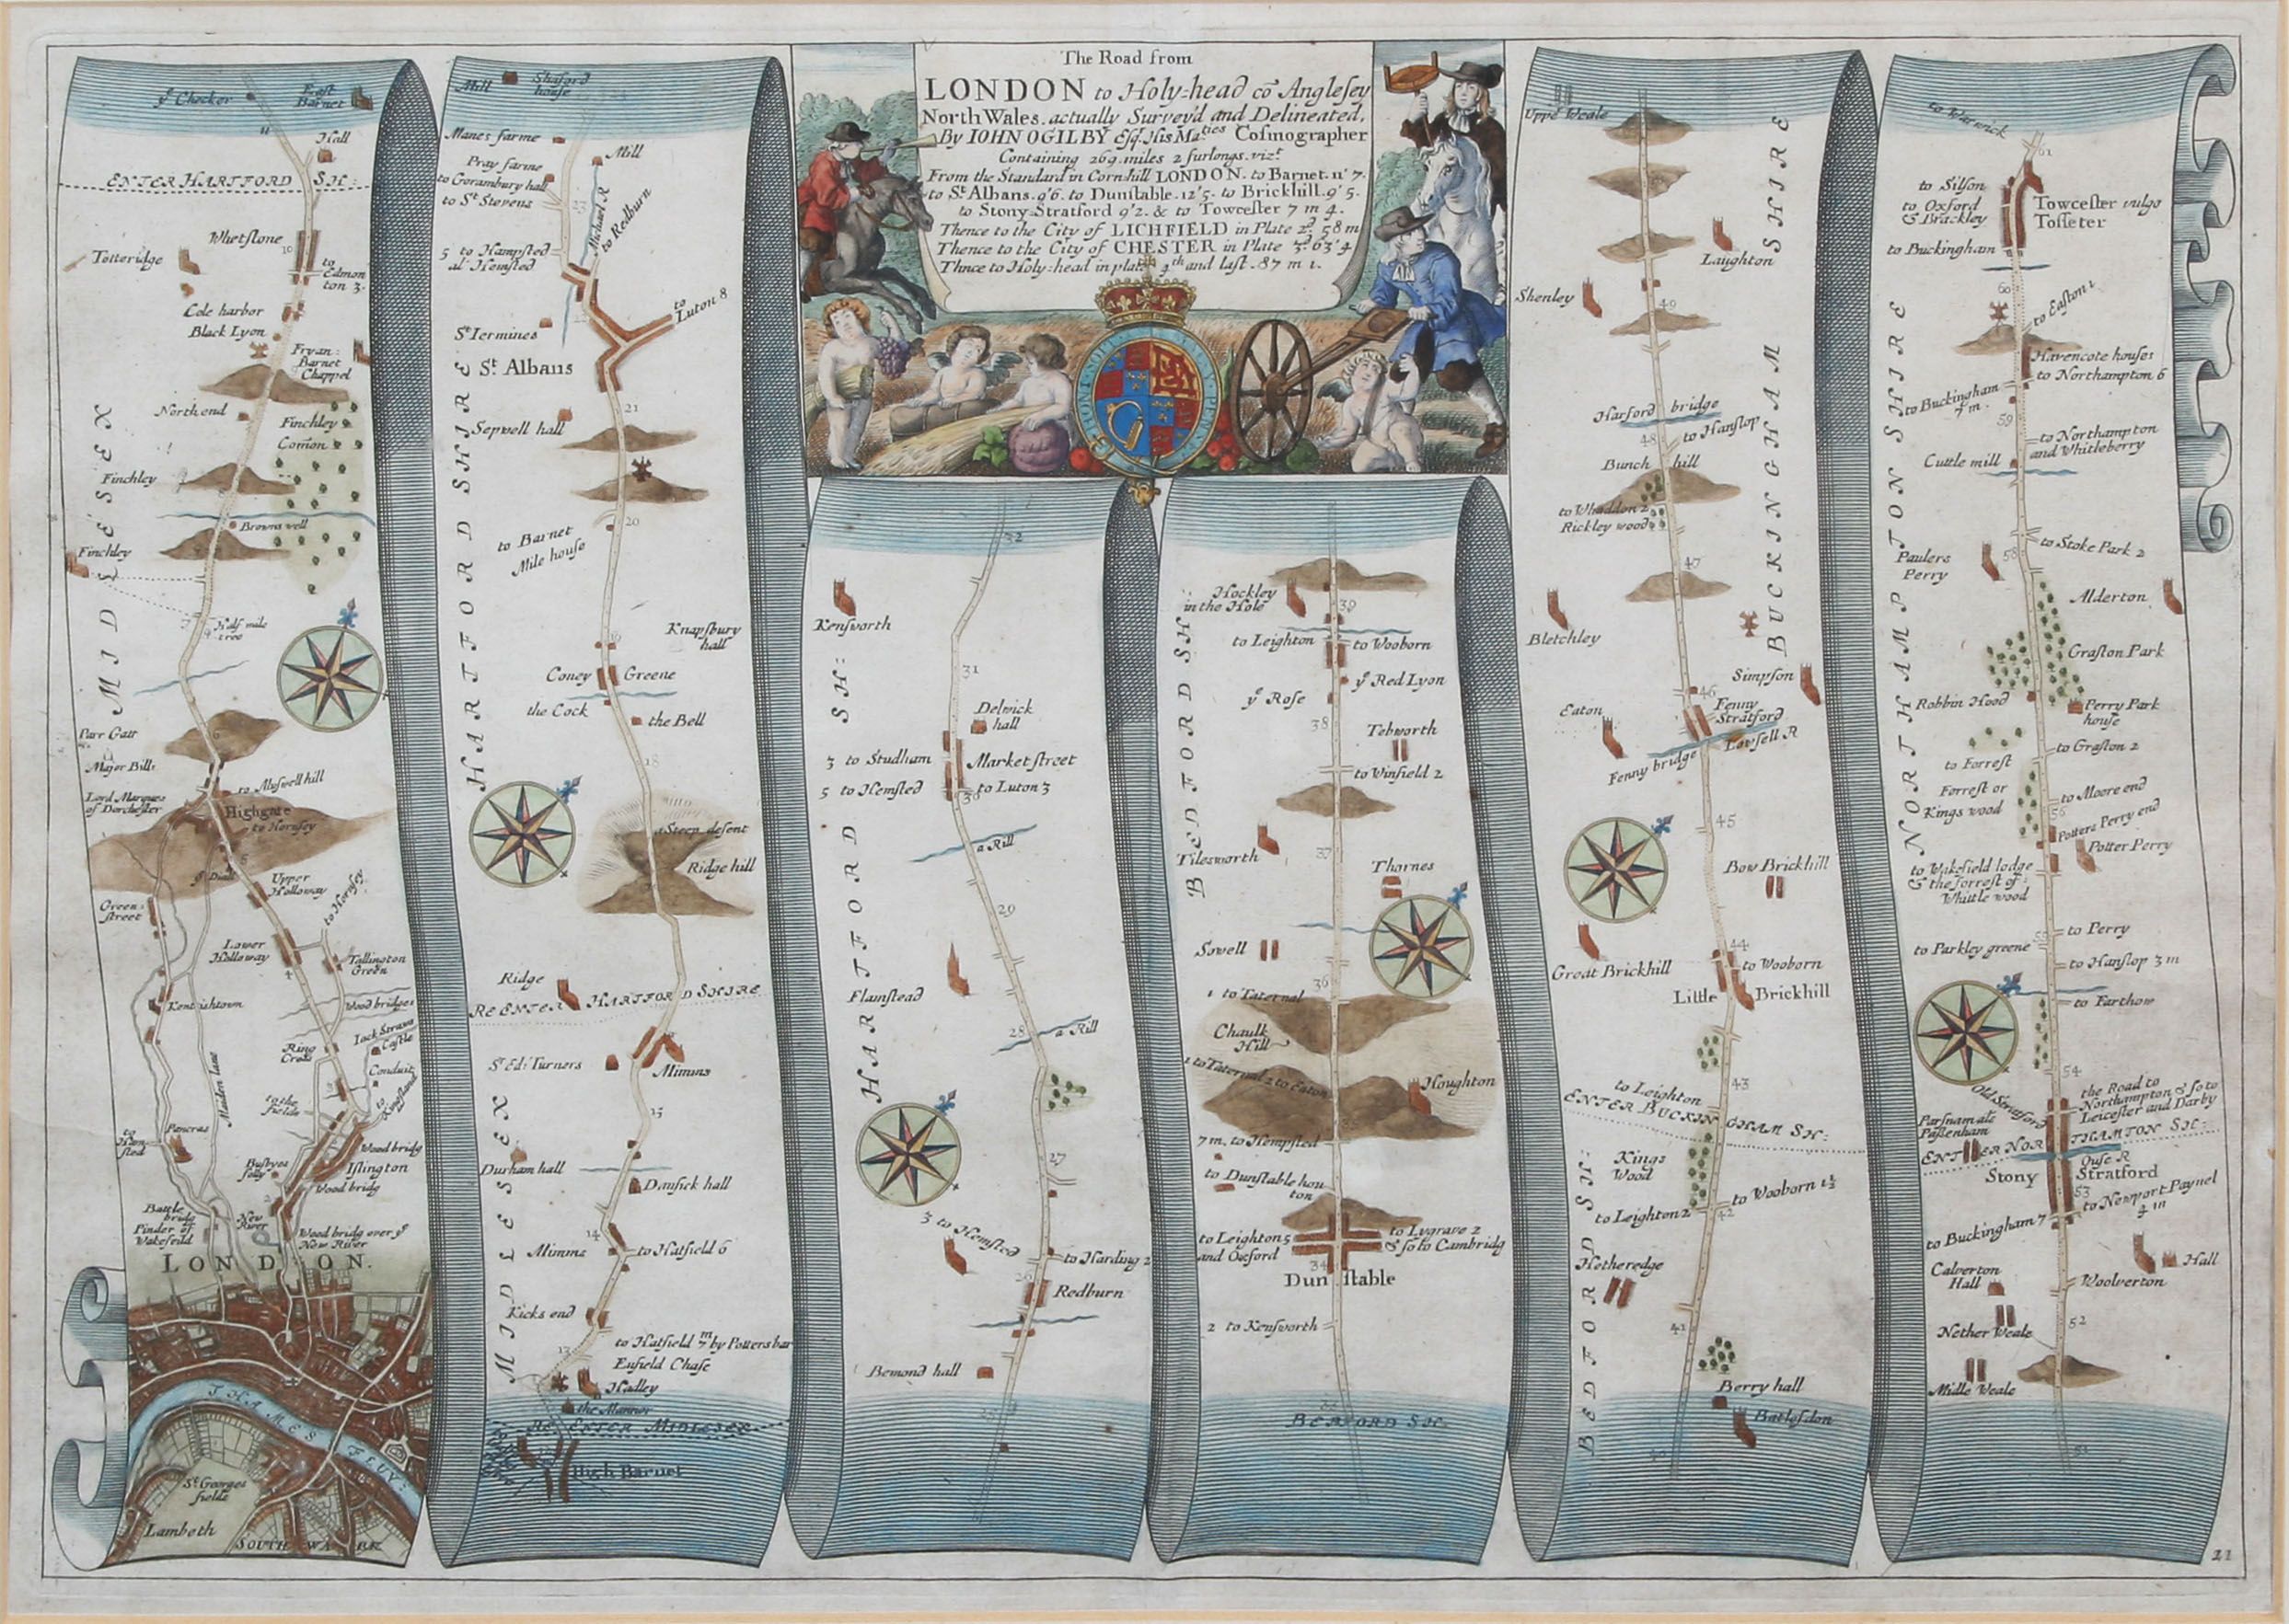 The Road from
LONDON to Holy=head cō Anglesey
North Wales. actually Survey'd and Delineated,
By IOHN OGILBY Esq. His Ma.ties Cosmographer
Containing 269 miles 2 furlongs. vizt
From the Standard in Cornhill LONDON. to Barnet. 11' 7.
to St. Albans. 9'6. to Dunstable. 12'5. to Brickhill. 9' 5.
to Stony=Stratford 9'2. & to Towcester 7 m 4.
Thence to the City of LICHFIELD in Plate 2d. 58 m
Thence to the City of CHESTER in Plate 3d. 63' 4
Thnce to Holy=head in plate 4th and last. 87 m 1.
ye Checker
East Barnet
11
Hall
ENTER HARTFORD SH:
Whetstone
10
to Edmonton 3.
Totteridge
Cole harbor
Black Lyon
Fryan: Barnet Chappel
North end
Finchley Comon
Finchley
Browns well
Finchley
MIDLESEX
7
Half mile tree
Parr Gate
6
Major Bills
to Muswell hill
Lord Marques of Dorchester
Highgate
to Hornsey
5
Upper Holloway
Green street
to Hornsey
Lower Holloway
4
Tallington Green
Kentishtown
Wood bridges
Ring Cross
Iack Straws Castle
Conduit
Maiden lane
3
to the fields
to Kingsland
to Hamsted
Pancras
Wood bridg
Busbyes folly
Islington
Wood bridg
2
Battle bridg
Pinder of Wakefeild
New River
Wood bridg over ye New River
LONDON.
THAMES FLUV:
St. Georges fields
Lambeth
SOUTHWARK
Mill
Shaford house
Manes farme
Pray farme
to Gorambury hall
to St. Stevens
Mill
23
Michael R
to Redburn
5 to Hampsted
al: Hemsted
to Luton 8
St. Iermines
St. Albans
21
Sepwell hall
20
to Barnet
Mile house
HARTFORD SHIRE
Knapsbury hall
19
Coney Greene
the Cock
the Bell
18
a Steep desent
Ridge hill
17
Ridge
RE ENTER HARTFORD SHIRE
St. Ed: Turners
Mimms
15
MIDLESEX
Durham hall
Dansick hall
14
Mimms
to Hatfield 6
Kicks end
to Hatfield 7 m by Potters bar
13
Enfield Chase
Hadley
the Mannor
RE ENTER MIDLESEX
High Barnet
32
Kensworth
HARTFORD SH:
31
Delwick hall
3 to Studham
Market street
5 to Hemsted
to Luton 3
30
a Rill
29
Flamstead
28
a Rill
27
3 to Hemsted
to Harding 2
26
Redburn
Bemond hall
25
BEDFORD SH:
Hockley in the Hole
39
to Leighton
to Wooborn
ye Rose
ye Red Lyon
38
Tebworth
to Winfield 2
Tilesworth
37
Thornes
Sowell
36
1 to Taternal
Chaulk Hill
1 to Taternal 2 to Eaton
Houghton
7 m. to Hempsted
to Dunstable houton
to Leighton 5
and Oxford
to Lygrave 2
& so to Cambridg
34
Dunstable
2 to Kensworth
BEDFORD SH:
Uppe Weale
Laughton
Shenley
49
Harford bridge
48
to Hanslop
Bunch hill
to Whaddon 2
Rickley wood
47
BUCKINGHAM SHIRE
Bletchley
Simpson
46
Eaton
Fenny Stratford
Lowsell R
Fenny bridge
45
Bow Brickhill
44
Great Brickhill
to Wooborn
Little Brickhill
43
to Leighton
ENTER BUCKINGHAM SH:
Kings Wood
to Wooborn 1½
to Leighton 2
42
BEDFORD SH:
Hetheredge
41
Berry hall
Batlesdon
40
to Warwick
61
to Silson
to Oxford
& Brackley
Towcester vulgo
Tosseter
to Buckingham
60
to Easton 1
Havencote houses
to Northampton 6
to Buckingham 7 m.
59
to Northampton
and Whitleberry
Cuttle mill
NORTHAMPTON SHIRE
to Stoke Park 2
58
Paulers Perry
Alderton
Grafton Park
Robbin Hood
Perry Park house
to Grafton 2
to Forrest
Forrest or
Kings wood
to Moore end
56
Potters Perry end
Potter Perry
to Wakefield lodge
& the forrest of
Whittle wood
to Perry
to Parkley greene
55
to Hanslop 3 m
to Farthow
54
Old Stratford
the Road to
Northampton & so to
Leicester and Darby
Parsnam als
Passenham
ENTER NORTHAMTON SH:
Ouse R
Stony Stratford
53
to Newport Paynel
4 m
to Buckingham 7
Calverton Hall
Hall
Woolverton
Nether Weale
52
Midle Weale
51
21